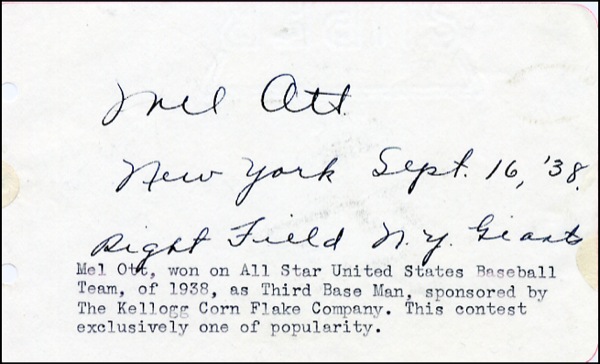 Mel Ott
New York Sept. 16, '38.
Right Field N.Y. Giants
Mel Ott, won on All Star United States Baseball
Team, of 1938, as Third Base Man, sponsored by
The Kellogg Corn Flake Company. This contest
exclusively one of popularity.